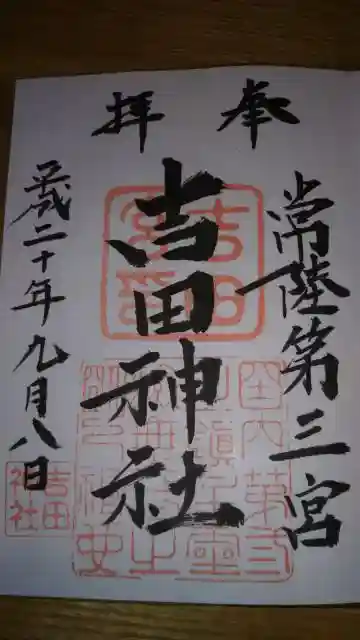 奉拝
常陸第三宮
吉田神社
平成二十年九月八日
吉田
神社